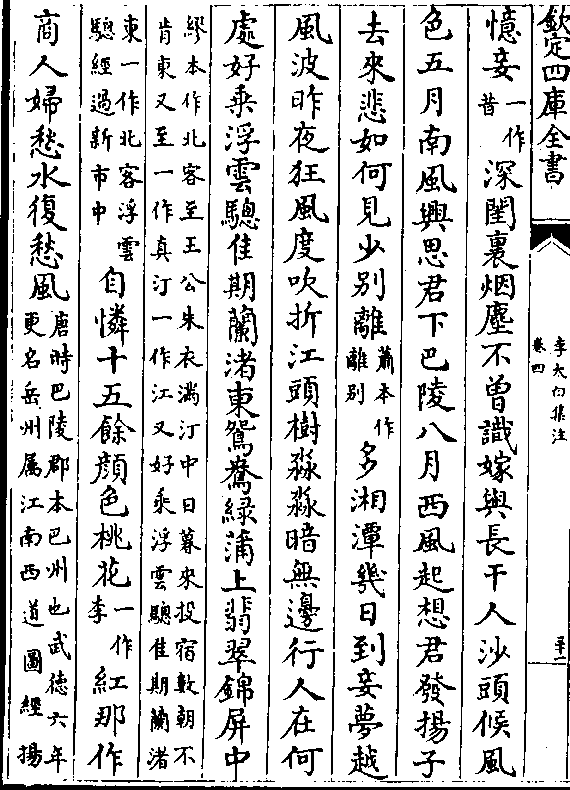 欽定四庫全書
李太白集注
卷四
憶妾一作昔深閨裏烟塵不曾識嫁與長干人沙頭候風
色五月南風興思君下巴陵八月西風起想君發揚子
去來悲如何見少别離蕭本作離别多湘潭幾日到妾夢越
風波昨夜狂風度吹折江頭樹淼淼暗無邊行人在何
處好乗浮雲驄佳期蘭渚東鴛鴦綠蒲上翡翠錦屏中
繆本作北客至王公朱衣滿汀中日暮來投宿數朝不
肯東又至一作真汀一作江又好乗浮雲驄佳期蘭渚
東一作北客浮雲驄經過新市中自憐十五餘顔色桃花一作李紅那作
商人婦愁水復愁風唐時巴陵郡本巴州也武德六年更名岳州属江南西道圖經揚